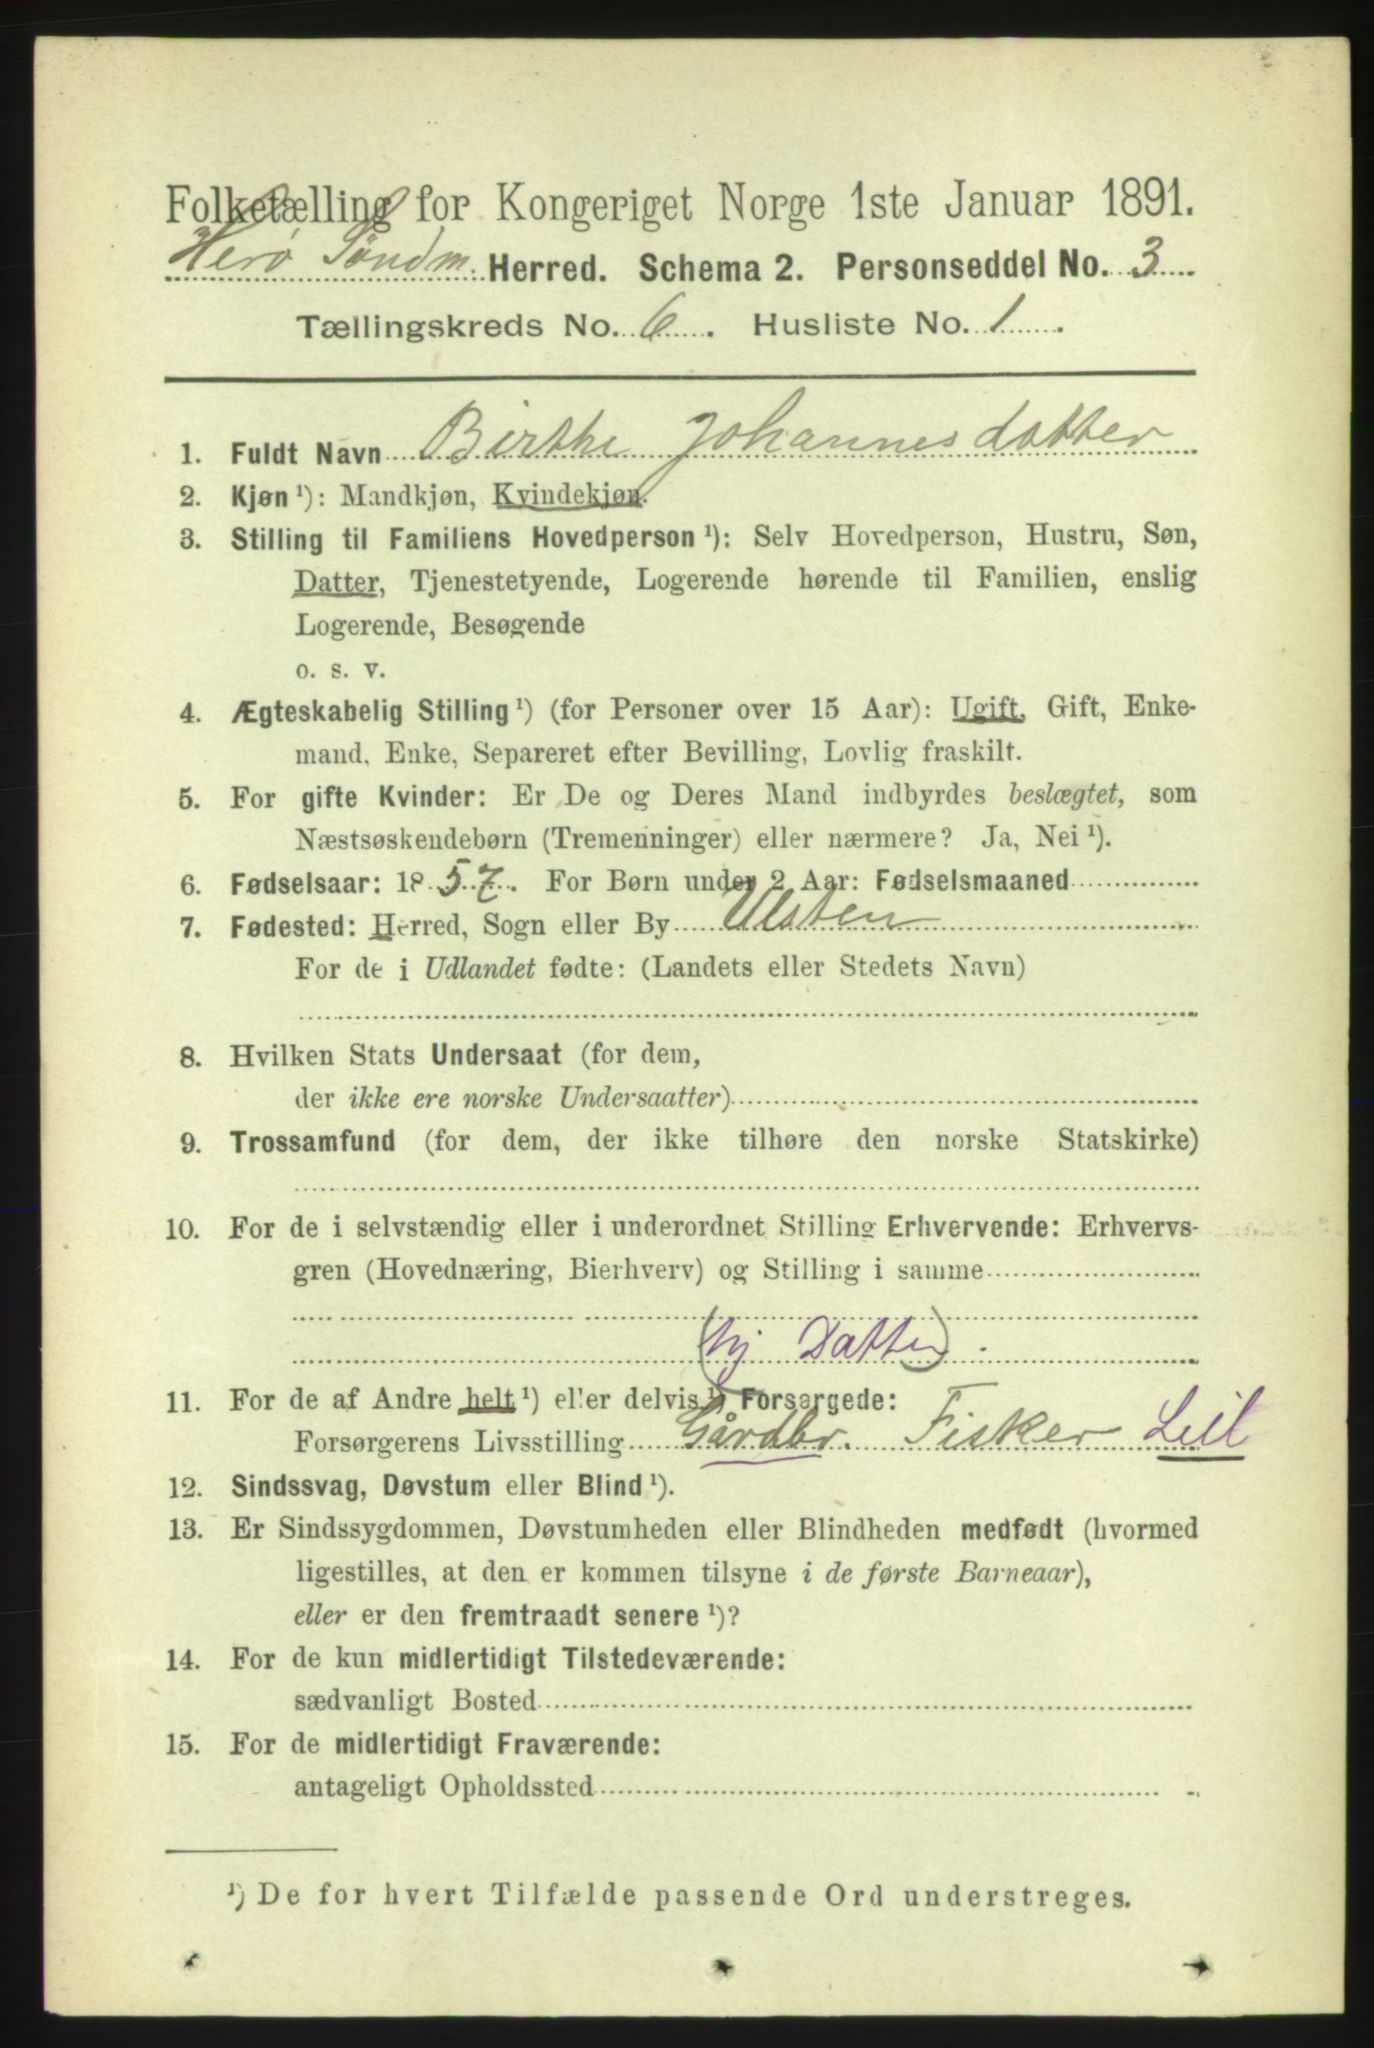 Folketælling for Kongeriget Norge 1ste Januar 1891.
Herø Söndm. Herred. Schema 2. Personseddel No. 3
Tællingskreds No. 6. Husliste No. 1.
1. Fuldt Navn Birthe Johannesdatter
2. Kjøn ¹): Mandkjøn, Kvindekjøn.
3. Stilling til Familiens Hovedperson ¹): Selv Hovedperson, Hustru, Søn,
Datter, Tjenestetyende, Logerende hørende til Familien, enslig
Logerende, Besøgende
o. s. v.
4. Ægteskabelig Stilling ¹) (for Personer over 15 Aar): Ugift, Gift, Enke-
mand, Enke, Separeret efter Bevilling, Lovlig fraskilt.
5. For gifte Kvinder: Er De og Deres Mand indbyrdes beslægtet, som
Næstsøskendebørn (Tremenninger) eller nærmere? Ja, Nei ¹).
6. Fødselsaar: 1857. For Børn under 2 Aar: Fødselsmaaned
7. Fødested: Herred, Sogn eller By Ulsten
For de i Udlandet fødte: (Landets eller Stedets Navn)
8. Hvilken Stats Undersaat (for dem,
der ikke ere norske Undersaatter)
9. Trossamfund (for dem, der ikke tilhøre den norske Statskirke)
10. For de i selvstændig eller i underordnet Stilling Erhvervende: Erhvervs-
gren (Hovednæring, Bierhverv) og Stilling i samme
(hj Datter).
11. For de af Andre helt ¹) eller delvis ¹) Forsørgede:
Forsørgerens Livsstilling Gårdbr. Fisker Leil
12. Sindssvag, Døvstum eller Blind ¹).
13. Er Sindssygdommen, Døvstumheden eller Blindheden medfødt (hvormed
ligestilles, at den er kommen tilsyne i de første Barneaar),
eller er den fremtraadt senere ¹)?
14. For de kun midlertidigt Tilstedeværende:
sædvanligt Bosted
15. For de midlertidigt Fraværende:
antageligt Opholdssted
¹) De for hvert Tilfælde passende Ord understreges.